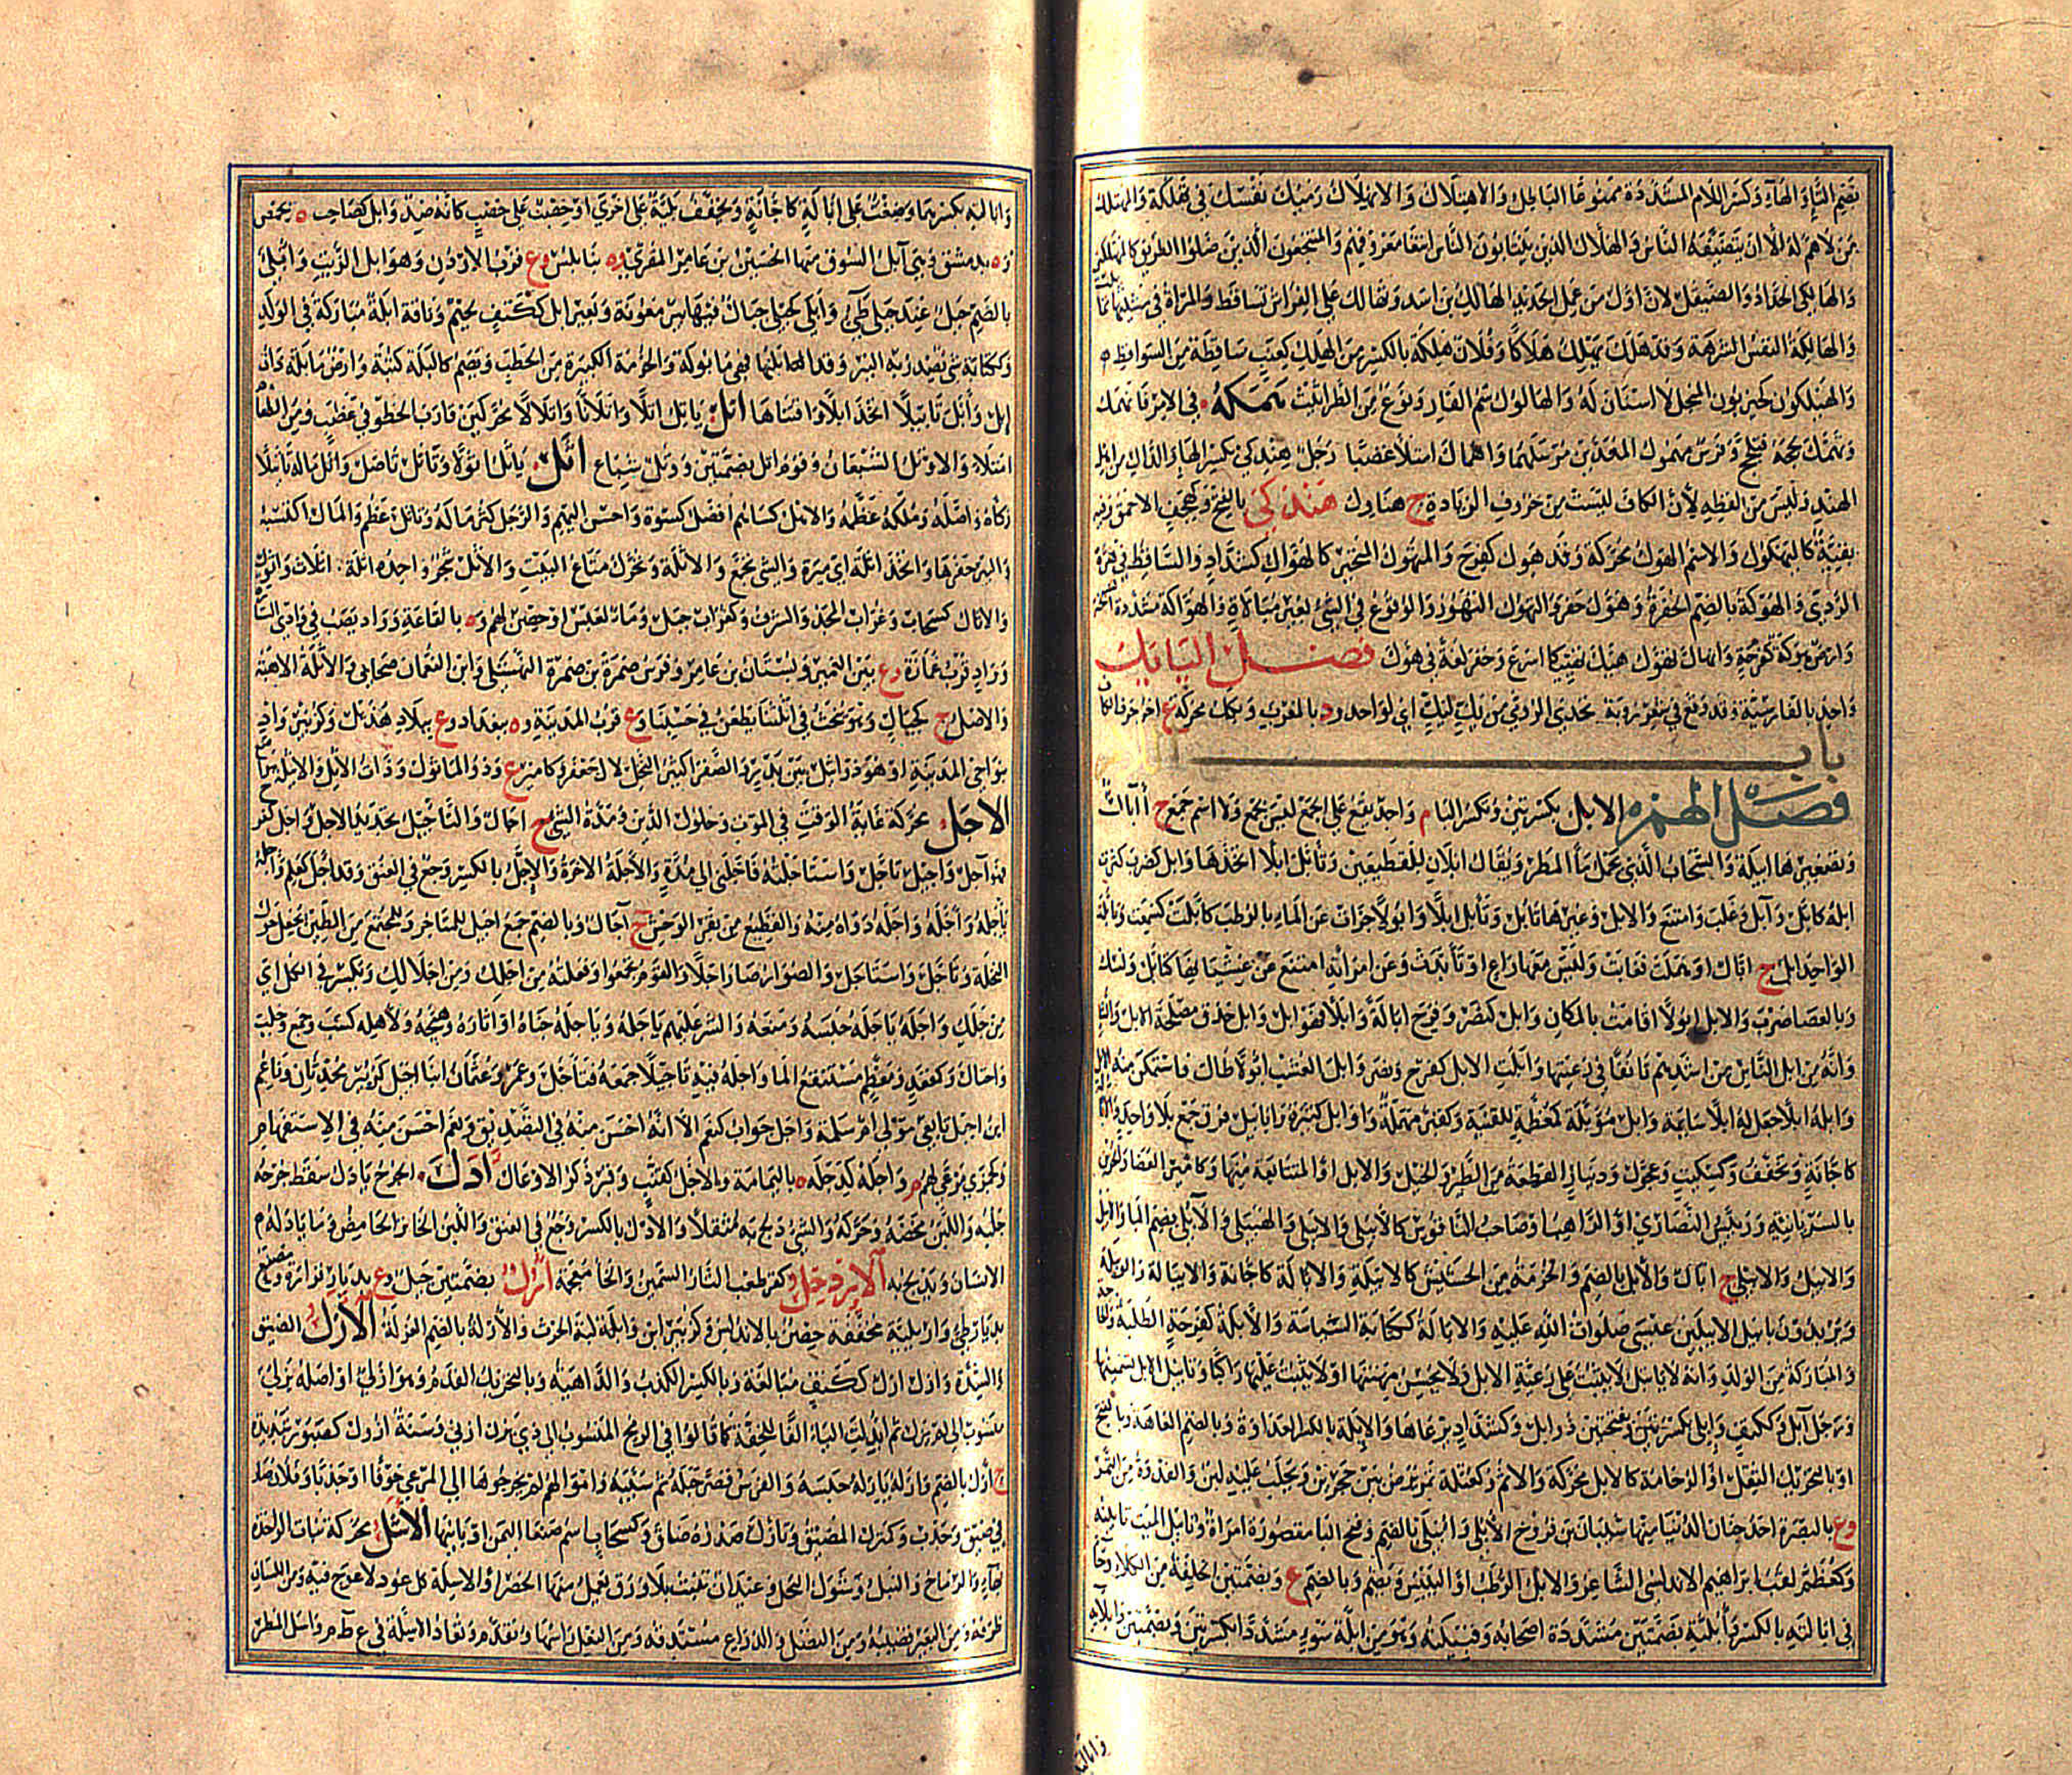 بضم التاء والهاء وكسر اللام المشددة ممنوعا الباطل والاهتلاك والانهلاك رميك نفسك في تهلكة والمهتلك
من لا هم له الا ان يتضيفه الناس والهلاك الذين ينتابون الناس ابتغاء معروفهم والمنتجعون الذين ضلوا الطريق كالمهتلكين
والهالكي الحداد والصيقل لان اول من عمل الحديد الهالك بن اسد وتهالك على الفراش تساقط والمراة في مشيتها تمايلت
والهالكة النفس الشرهة وقد هلك يهلك هلاكا وفلان هلكة بالكسر من الهلك كعنب ساقطة من السواقط
والهيلكون كحيزبون المنجل لا اسنان له والهالوك سم الفار ونوع من الطراثيث همكه في الامر فانهمك
وتهمك لججه فلج وفرس مهموك المعدين مرسلهما واهماك امتلا غضبا رجل هندكي بكسر الهاء والدال من اهل
الهند وليس من لفظه لان الكاف ليست من حروف الزيادة ج هنادك هندكي بالفتح وكهجف الاحمق وفيه
بقية كاليهكوك والاسم الهوك محركة وقد هوك كفرح والمتهوك المتحير كالهواك كشداد والساقط في هوة
الردى والهوكة بالضم الحفرة وهوك حفر والتهوك التهور والوقوع في الشيء بغير مبالاة والهواكة مشددة
وارض هوكة كفرحة وانهاك لهوك هيك تهييكا اسرع وحفر لغة في هوك فصل الياء يك
واحد بالفارسية وقد وقع في شعر روبة تحدي الرومي من يك ليك اي لواحد ود بالمغرب ويكك محركة ع اخر حرف الكاف
باب اللام
فصل الهمزه الابل بكسرتين وتسكن الباء م واحد يقع على الجمع ليس بجمع ولا اسم جمع ج آبال
وتصغيرها ابيلة والسحاب الذي يحمل ماء المطر ويقال ابلان للقطيعين وتابل ابلا اتخذها وابل كضرب كثرت
ابله كابل وآبل وغلب وامتنع والابل وغيرها تابل وتابل ابلا وابولا جزات عن الماء بالرطب كابلت كسمعت وتابلت
الواحد ابل ج ابال او هملت فغابت وليس معها راع او تابدت وعن امراته امتنع عن غشيانها كتابل ونسك
وبالعصا ضرب والابل ابولا اقامت بالمكان وابل كنصر وفرح ابالة وابلا فهو آبل وابل حذق مصلحة الابل والشاء
وانه من آبل الناس من اشدهم تانقا في رعيتها وابلت الابل كفرح ونصر وابل العشب ابولا طال فاستمكن منه الابل
وابله ابلا جعل له ابلا سائمة وابل مؤبلة كمعظمة للقنية وكقبر مهملة واوابل كثيرة وابابيل فرق جمع بلا واحد والابالة
كاجانة وتخفف وكسكيت وعجول ودينار القطعة من الطير والخيل والابل او المتتابعة منها وكامير العصا والحزين
بالسريانية ورئيس النصارى او الراهب او صاحب الناقوس كالايبلي والابلي والهيبلي والآبلي بضم الباء والايبل
والابيل والابيلي ج ابال والابل بالضم والحزمة من الحشيش كالابيلة والابالة كاجانة والايبالة والوبيلة
ويريدون بابيل الابيلين عيسى صلوات الله عليه والابالة ككتابة السياسة والابلة كفرحة الطلبة والحاجة
والمباركة من الولد وانه لا ياتبل لا يثبت على رعية الابل ولا يحسن مهنتها او لا يثبت عليها راكبا وتابيل الابل تسمينها
ورجل آبل وككتف وابلي بكسرتين وبفتحتين ذو ابل وكشداد يرعاها والابلة بالكسر العداوة وبالضم العاهة وبالفتح
او بالتحريك الثقل او الوخامة كالابل محركة والاثم وكعتلة تمر يرض بين حجرين ويحلب عليه لبن والفدرة من التمر
وع بالبصرة احد جنان الدنيا منها شيبان بن فروخ الابلي وابلى بالضم وفتح الباء مقصورة امراة وتابيل الميت تابينه
وكمعظم لقب ابراهيم الاندلسي الشاعر والابل الرطب او اليبيس ويضم وبالضم ع وبضمتين الخلفة من الكلاء وجاء
في ابالته بالكسر وابلته بضمتين مشددة اصحابه وقبيلته وهو من ابلة سوء مشددا بكسرتين وبضمتين وابلاته
وابالته
وابالته بكسرهما وضغث على ابالة كاجانة ويخفف بلية على اخرى او خصب على خصب كانه ضد وآبل كصاحب ه بحمص
وه بدمشق وهي آبل السوق منها الحسين بن عامر المقري وه بنابلس وع قرب الاردن وهو آبل الزيت وابلى
بالضم جبل عند جبلي طيء وابلى كحبلى جبال فيها بئر معونة وبعير ابل ككتف لحيم وناقة ابلة مباركة في الولد
وككتابة شيء تصدر به البئر وقد ابلتها فهي مابولة والحزمة الكبيرة من الحطب ويضم كالبلة كثبة وارض مابلة ذات
ابل وابل تابيلا اتخذ ابلا واقتناها اتل ياتل اتلا واتلانا واتلالا محركين قارب الخطو في غضب ومن الطعام
امتلا والاوتل الشبعان وقوم اتل بضمتين ووتل شباع اثل ياثل اثولا وتاثل تاصل واثل ماله تاثيلا
زكاه واصله وملكه عظمه والاهل كساهم افضل كسوة واحسن اليهم والرجل كثر ماله وتاثل عظم والمال اكتسبه
والبئر حفرها واتخذ اثلة اي ميرة والشيء تجمع والاثلة وتحرك متاع البيت والاثل شجر واحده اثلة اثلات واثول
والاثال كسحاب وغراب المجد والشرف وكغراب جبل وماء لعبس او حصن لهم وه بالقاعة وواد يصب في وادي الستارة
وواد قرب غمازة وع بين الغمير وبستان بن عامر وفرس ضمرة بن ضمرة النهشلي وابن النعمان صحابي والاثلة الاهبة
والاصل ج كجبال وهو ينحت في اثلتنا يطعن في حسبنا وع قرب المدينة وه ببغداد وع ببلاد هذيل وكزبير واد
بنواحي المدينة او هو ذو اثيل بين بدر والصفراء كثير النخل لال جعفر وكامير ع وذو الماثول وذات الاثل والاثيلة مواضع
الاجل محركة غاية الوقت في الموت وحلول الدين ومدة الشيء ج اجال والتاجيل تحديد الاجل واجل كفرح
فهو آجل واجيل تاخر واستاجلته فاجلني الى مدة والآجلة الاخرة والاجل بالكسر وجع في العنق وقد اجل كعلم واجله
ياجله واجله وآجله داواه منه والقطيع من بقر الوحش ج آجال وبالضم جمع اجيل للمتاخر وللمجتمع من الطين يجعل حول
النخلة وتاجل واستاجل والصوار صار اجلا والقوم تجمعوا وفعلته من اجلك ومن اجلالك وتكسر في الكل اي
من جللك واجله ياجله حبسه ومنعه والشر عليهم ياجله وياجله جناه او اثاره وهيجه ولاهله كسب وجمع وجلب
واحتال وكمقعد ومعظم مستنقع الماء واجله فيه تاجيلا جمعه فتاجل وعمر وعثمان ابنا اجيل كزبير محدثان وناعم
ابن اجيل تابعي مولى ام سلمة واجل جواب كنعم الا انه احسن منه في التصديق ونعم احسن منه في الاستفهام
وكجمزى مرعى لهم م واجلة كدجلة ه باليمامة والاجل كقنب وقبر ذكر الاوعال ادل الجرح يادل سقط جرحه
جلبه واللبن مخضه وحركه والشيء دلج به مثقلا والادل بالكسر وجع في العنق واللبن الخاثر الحامض وما يادله
الانسان ويدلج به الاردخل كقرطعب التار السمين والخاء معجمة ارل بضمتين جبل وع بديار فزارة ومصنع
بديار طيء واريلية مخففة حصن بالاندلس وكزبير ابن والبة بن الحرث والارلة بالضم الغرلة الازل الضيق
والشدة وازل ازل ككتف مبالغة وبالكسر الكذب والداهية وبالتحريك القدم وهو ازلي او اصله يزلي
منسوب الى لم يزل ثم ابدلت الياء الفا للخفة كما قالوا في الرمح المنسوب الى ذي يزن ازني وسنة ازول كصبور شديدة
ج ازل بالضم وازله يازله حبسه والفرس قصر حبله ثم سيبه واموالهم لم يخرجوها الى المرعى خوفا او جدبا وفلان صار
في ضيق وجدب وكمنزل المضيق وتازل صدره ضاق وكسحاب اسم صنعاء اليمن او بانيها الاسل محركة نبات الواحدة
بهاء والرماح والنبل وشوك النخل وعيدان تنبت بلا ورق يعمل منها الحصر او الاسلة كل عود لا عوج فيه ومن اللسان
طرفه ومن البعير قضيبه ومن النصل والذراع مستدقه ومن النعل راسها وتقدم وتعاد الاسلة في ع ظ م واسل المطر